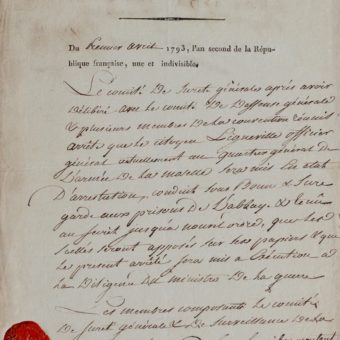 Du premier avril 1793, l'an second de la Répu-
blique française, une et indivisible.
Le comité De Sureté générales après avoir
Délibéré avec le comité De Deffense générale
& plusieurs membres De la convention Réunis
arrête que le citoyen Ligneville officier
général actuellement au Quartier général de
L'armée De la moselle sera mis En état
D'arrestation, conduit sous Bonne & Sure
garde aux prisons De L'abbaye & tenu
au secret jusqu'à nouvel ordre, que les
scellés seront apposés sur ses papiers & que
Le présent arrêté sera mis a Exécution a
La Diligence du ministre De la guerre
Les membres composants le comité
De Sureté générale & De Surveillance De la